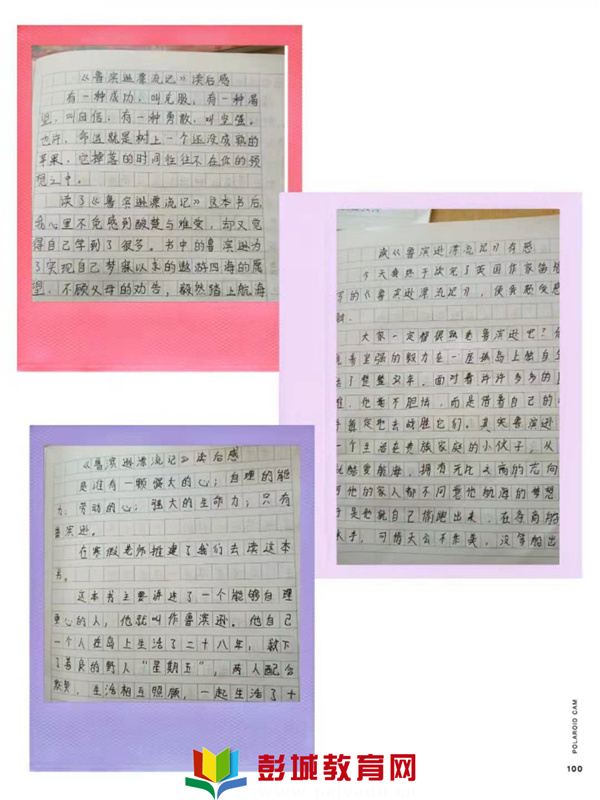 《鲁宾逊漂流记》读后感
有一种成功，叫克服，有一种渴
望，叫自信，有一种勇敢，叫坚强。
也许，命运就是树上一个还没成熟的
苹果，它掉落的时间往往不在你的预
想之中。
读了《鲁宾逊漂流记》这本书后
我心里不免感到酸楚与难受，却又觉
得自己学到了很多。书中的鲁宾逊为
了实现自己梦寐以来的遨游四海的愿
望，不顾父母的劝告，毅然踏上航海
《鲁滨逊漂流记》有感
今天我终于读完了英国作家笛福
写的《鲁滨逊漂流记》，使我颇受感
大家一定都很熟悉鲁滨逊吧？
凭着坚强的毅力在一座孤岛上独自生
活了整整
面对着许许多多的困
难，他毫不胆怯，而是借着自己的
去战胜它们。其实鲁滨逊
一个生活在贵族家庭的小伙子，从
酷爱航海，拥有无比之高的志向
可他的家人都不同意他航海的梦想
于是他就自己偷跑出来，在
水手，可惜天公不作美，没等船出
《鲁宾逊漂流记》读后感
是谁有一颗强大的心；自理的能
力；劳动的心；强大的生命力；只有
鲁宾逊。
在寒假老师推建了我们去读这本
书。
这本书主要讲述了一个能够自理
更心的人，他就叫作鲁滨逊。他自己
一个人在岛上生活了二十八年，救下
了善良的野人“星期五”，两人配合
默契，生活相互照顾，一起生活了十
POLAROID CAM
100
彭城教育网